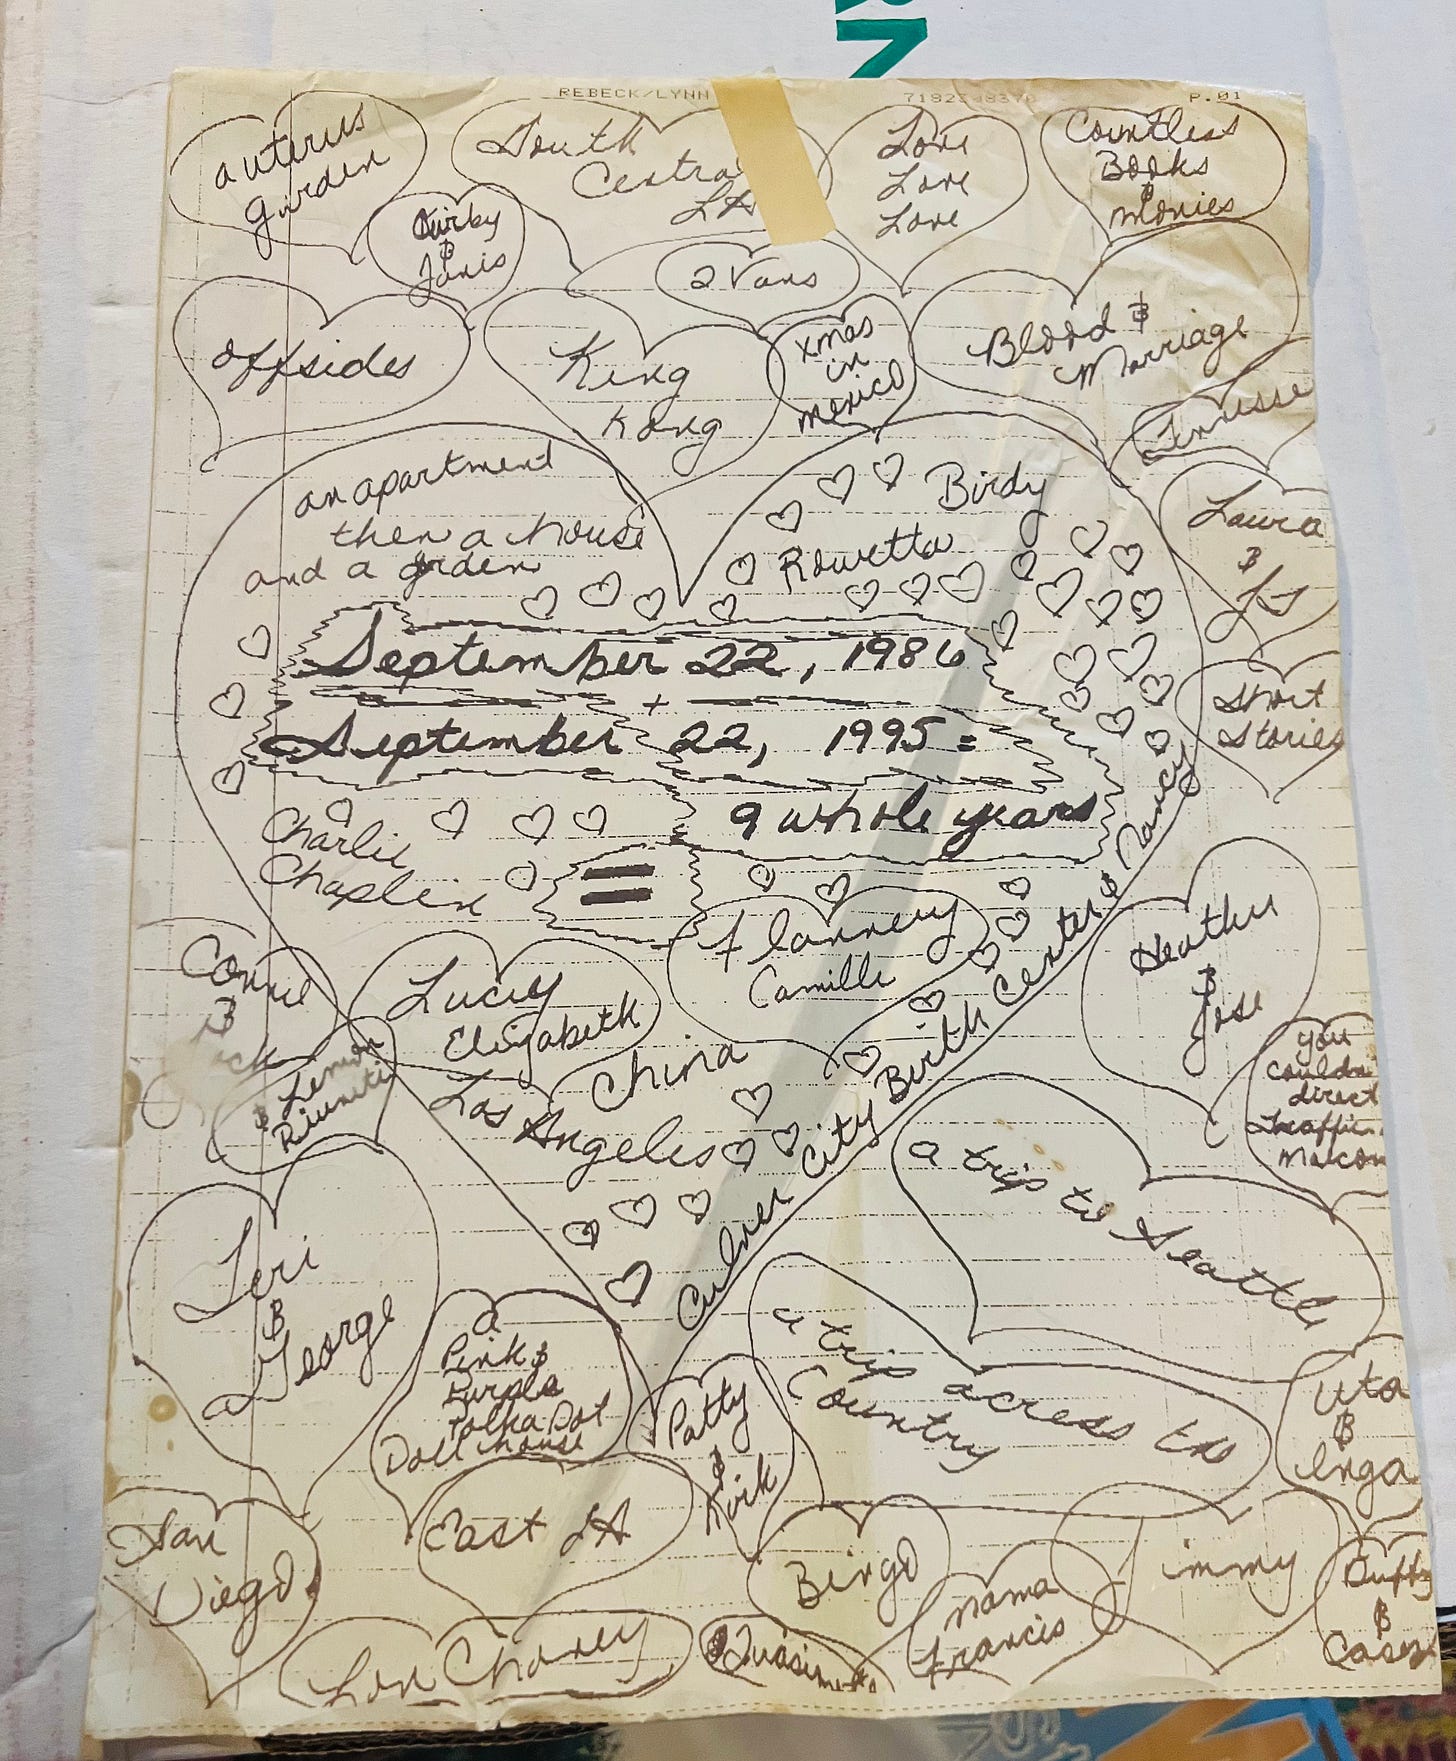 REBECK/LYNN
P.01
a uterus
garden
South
Central
LA
Love
Love
Love
Countless
Books
&
monies
&
Janis
2 Vans
offsides
King
Kong
xmas
in
mexico
Blood &
Marriage
Tennusse
an apartment
then a house
and a grden
Birdy
Rowetta
Laura
&
JJ
September 22, 1986
+
September 22, 1995 =
9 whole years
=
Short
Stories
Charlie
Chaplin
Flannery
Camille
Culver City Birth Center & Nancy
Heather
&
Jose
Connie
&
ck
Lucy
Elizabeth
China
Los
Angeles
& Lemon
Riunite
you
couldn
direct
traffic
malcom
a trip to Seattle
Teri
&
George
a
Pink &
Purple
Polka Dot
Doll house
a trip acress the
Country
Patty
&
Kirk
Uta
&
Inga
San
Diego
East LA
Bingo
Jimmy
mama
Francis
&
Casey
Lon Chaney
Quasimoto